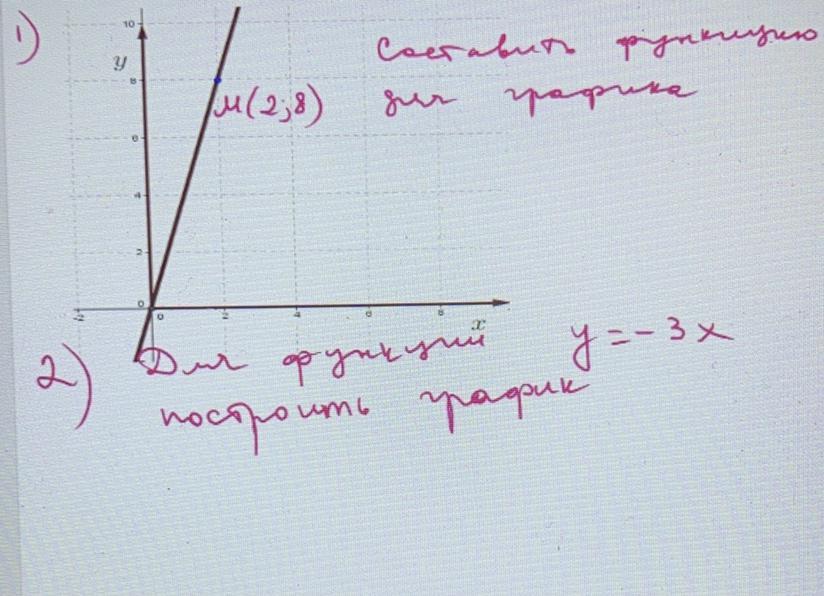 1)
Составить функцию
для графика
10
y
8
M(2;8)
6
4
2
0
-2 0 2 4 6 8
x
2) Для функции y = -3x
построить график